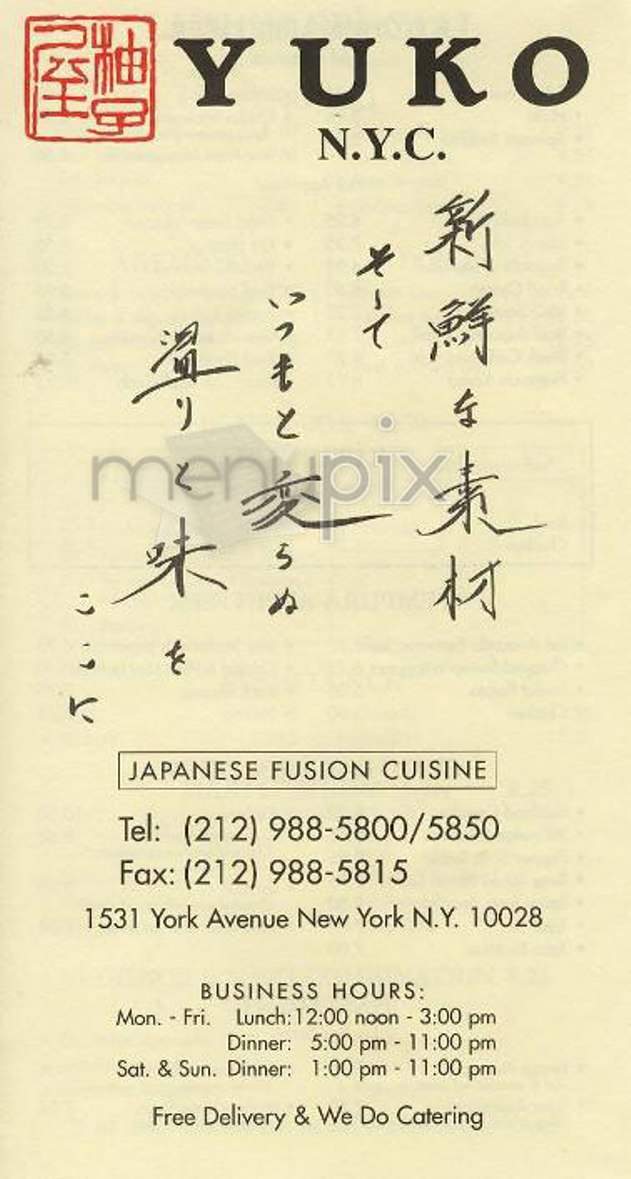 柚子屋
YUKO
N.Y.C.
新鮮な素材
そして
いつもと変らぬ
温りと味を
ここに
menupix
JAPANESE FUSION CUISINE
Tel: (212) 988-5800/5850
Fax: (212) 988-5815
1531 York Avenue New York N.Y. 10028
BUSINESS HOURS:
Mon. - Fri. Lunch: 12:00 noon - 3:00 pm
Dinner: 5:00 pm - 11:00 pm
Sat. & Sun. Dinner: 1:00 pm - 11:00 pm
Free Delivery & We Do Catering